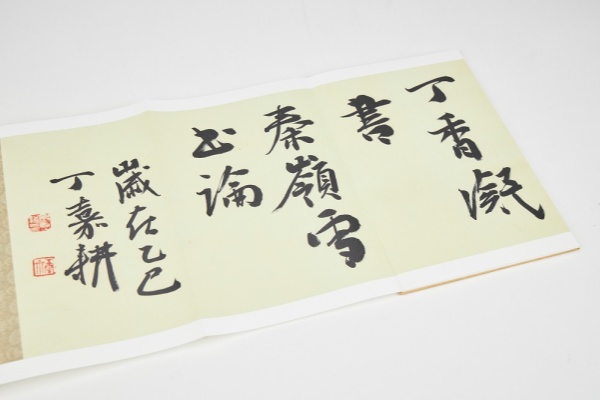 丁香凝
書
秦嶺雪
书論
歲在乙巳
丁嘉耕